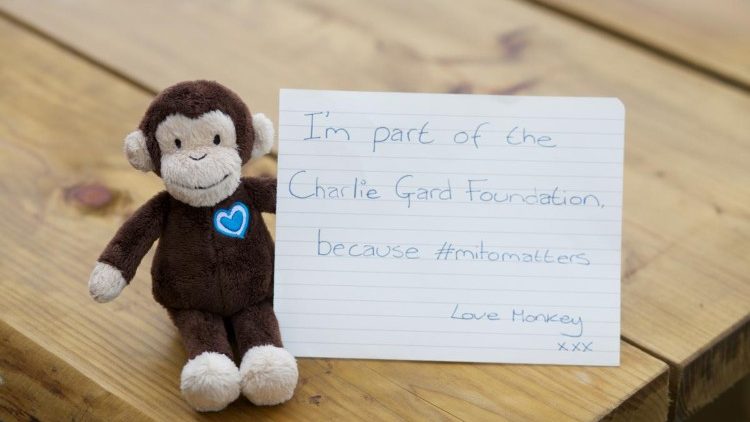 I'm part of the
Charlie Gard Foundation,
because #mitomatters
Love Monkey
xxx